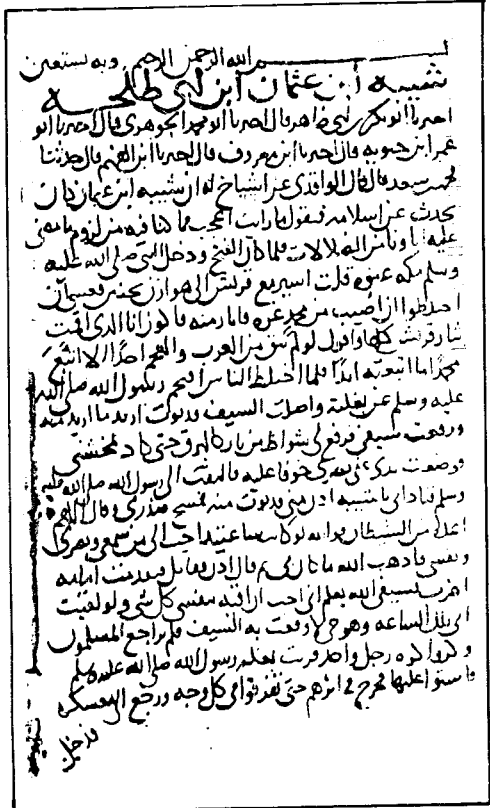 بسم الله الرحمن الرحيم وبه نستعين
شيبة ابن عثمان ابن ابي طلحة
اخبرنا ابو بكر بن ابي طاهر قال اخبرنا ابو محمد الجوهري قال اخبرنا ابو
عمر ابن حيويه قال اخبرنا ابن معروف قال اخبرنا ابن الفهم قال حدثنا
محمد بن سعد قال قال الواقدي عن اشياخ له ان شيبة ابن عثمان كان
يحدث عن اسلامه فيقول ما رايت اعجب مما كنا فيه من لزوم ما مضى
عليه اباونا من الضلالات فلما كان الفتح ودخل النبي صلى الله عليه
وسلم مكة عنوة قلت اسير مع قريش الى هوازن بحنين فعسى ان
اختلطوا ان اصيب من محمد غرة فاثار منه فاكون انا الذي اقمت
بثار قريش كلها واقول لو لم يبق من العرب والعجم احدا الا اتبع
محمدا ما اتبعته ابدا فلما اختلط الناس اقتحم رسول الله صلى الله
عليه وسلم عن بغلته واصلت السيف ودنوت اريد ما اريد منه
ورفعت سيفي فرفع لي شواظ من نار كالبرق حتى كاد يمحشني
فوضعت يدي على بصري خوفا عليه فالتفت الي رسول الله صلى الله عليه
وسلم فنادى يا شيبة ادن مني فدنوت منه فمسح صدري وقال اللهم
اعذه من الشيطان فوالله لهو كان ساعتيذ احب الي من سمعي وبصري
ونفسي فاذهب الله ما كان بي ثم قال ادن فقاتل فتقدمت امامه
اضرب بسيفي الله يعلم اني احب ان اقيه بنفسي كل شي ولو لقيت
ابي تلك الساعة وهو حي لاوقعت به السيف فلم تراجع المسلمون
وكروا كرة رجل واحد قربت بغلة رسول الله صلى الله عليه وسلم
فاستوى عليها فخرج في اثرهم حتى تفرقوا في كل وجه ورجع الى معسكره
فدخل